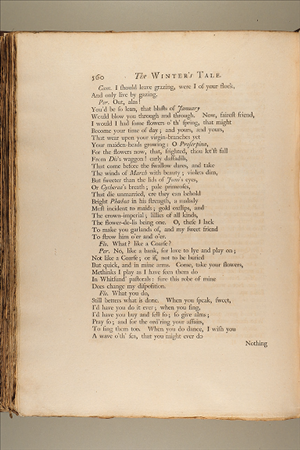 360 The WINTER's TALE.
Cam. I should leave grazing, were I of your flock,
And only live by gazing.
Per. Out, alas!
You'd be so lean, that blasts of January
Would blow you through and through. Now, fairest friend,
I would I had some flowers o' th' spring, that might
Become your time of day; and yours, and yours,
That wear upon your virgin-branches yet
Your maiden-heads growing: O Proserpina,
For the flowers now, that, frighted, thou let'st fall
From Dis's waggon! early daffodils,
That come before the swallow dares, and take
The winds of March with beauty; violets dim,
But sweeter than the lids of Juno's eyes,
Or Cytherea's breath; pale primroses,
That die unmarried, ere they can behold
Bright Phœbus in his strength, a malady
Most incident to maids; gold oxslips, and
The crown-imperial; lillies of all kinds,
The flower-de-lis being one. O, these I lack
To make you garlands of, and my sweet friend
To strow him o'er and o'er.
Flo. What? like a Coarse?
Per. No, like a bank, for love to lye and play on;
Not like a Coarse; or if, not to be buried
But quick, and in mine arms. Come, take your flowers,
Methinks I play as I have seen them do
In Whitsund' pastorals: sure this robe of mine
Does change my disposition.
Flo. What you do,
Still betters what is done. When you speak, sweet,
I'd have you do it ever; when you sing,
I'd have you buy and sell so; so give alms;
Pray so; and for the ord'ring your affairs,
To sing them too. When you do dance, I wish you
A wave o'th' sea, that you might ever do
Nothing